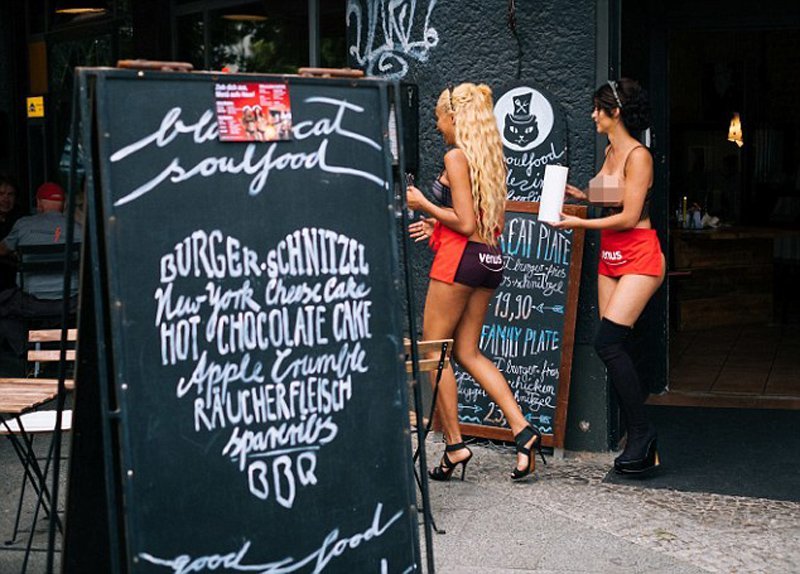 black cat
soulfood
BURGER · SCHNITZEL
New York Cheese Cake
HOT CHOCOLATE CAKE
Apple Crumble
RÄUCHERFLEISCH
spareribs
BBQ
good food
venus
soulfood
EAT PLATE
burger · fries
schnitzel
19,30
FAMILY PLATE
burger · fries
chicken
schnitzel
venus